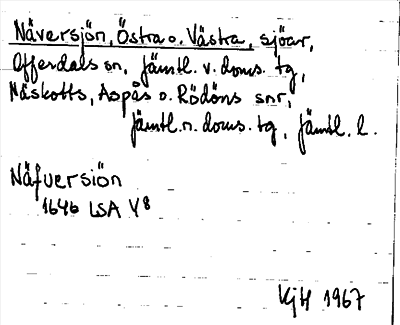 Näversjön, Östra o. Västra, sjöar,
Offerdals sn, Jämtl. v. doms. tg,
Näskotts, Aspås o. Rödöns snr,
Jämtl. n. doms. tg, Jämtl. l.
Näfversiön
1646 LSA Y8
KjH 1967